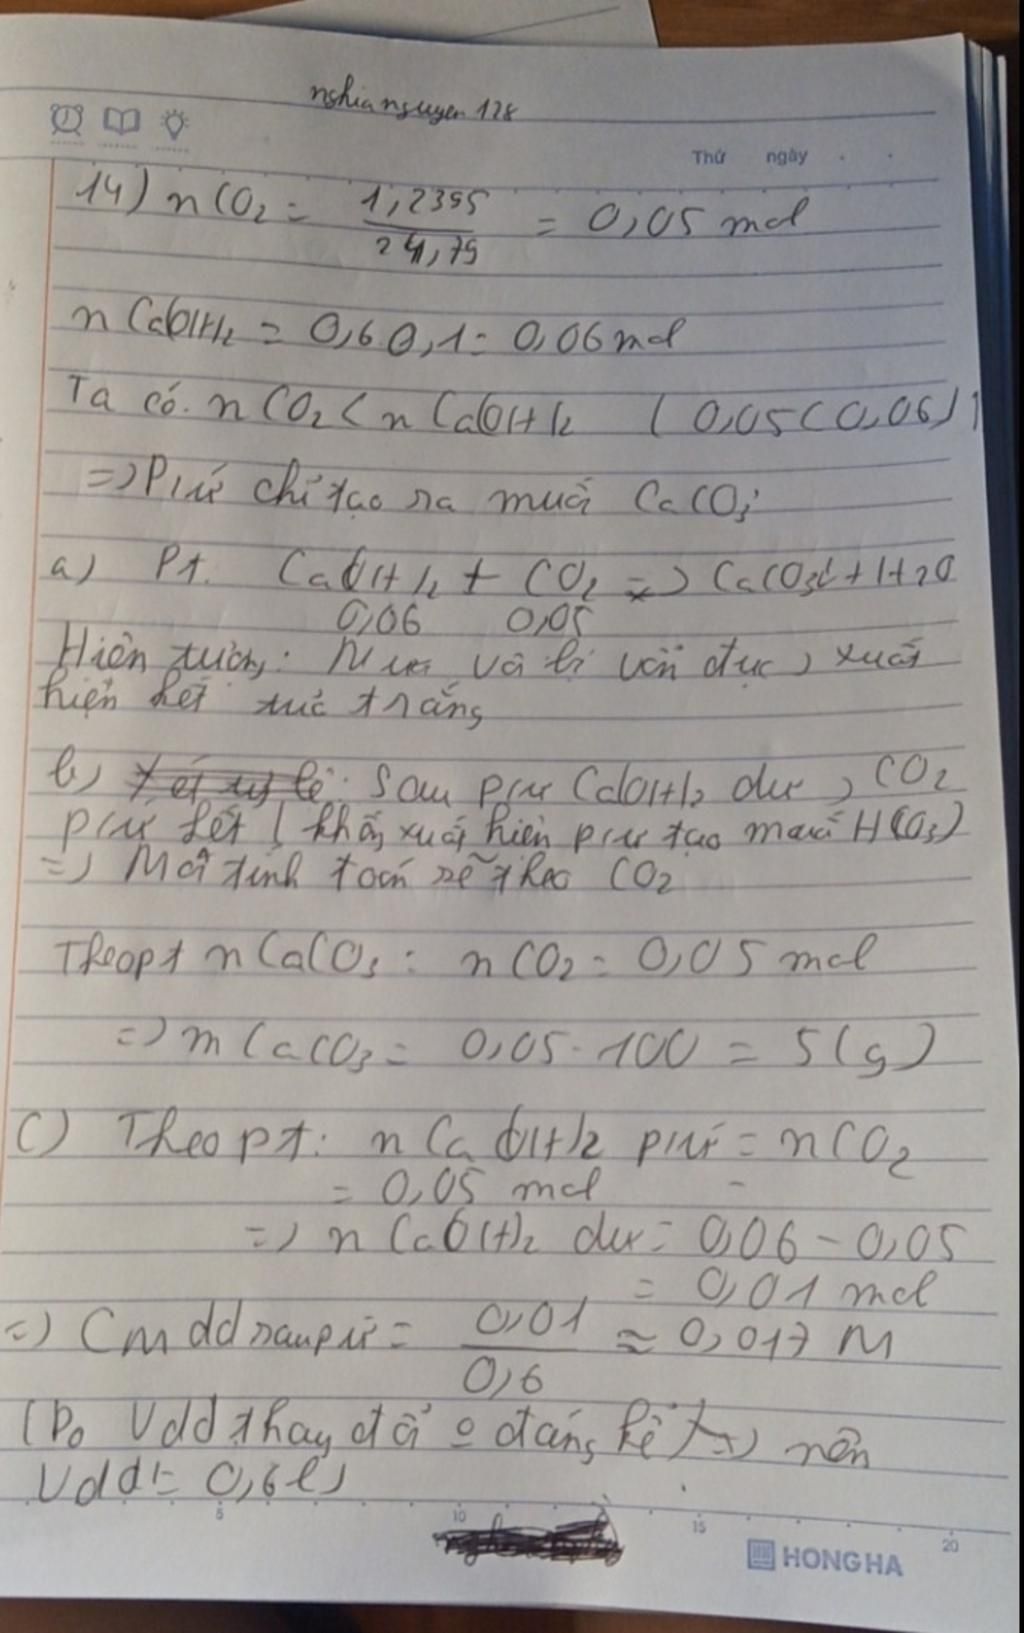 nghianguyen128
Thứ ngày
14) nCO2 = 1,2395 / 24,79 = 0,05 mol
nCa(OH)2 = 0,6.0,1 = 0,06 mol
Ta có. nCO2 < nCa(OH)2 (0,05 < 0,06)
=> Pứ chỉ tạo ra muối CaCO3
a) Pt. Ca(OH)2 + CO2 => CaCO3↓ + H2O
0,06 0,05
Hiện tượng: Nước vôi bị vẩn đục, xuất
hiện kết tủa trắng
b) Sau pứ Ca(OH)2 dư, CO2
pứ hết (không xuất hiện pứ tạo muối HCO3)
=> Mọi tính toán sẽ theo CO2
Theo pt nCaCO3 = nCO2 = 0,05 mol
=> mCaCO3 = 0,05.100 = 5(g)
C) Theo pt: nCa(OH)2 pứ = nCO2
= 0,05 mol
=> nCa(OH)2 dư = 0,06 - 0,05
= 0,01 mol
=> CM dd sau pứ = 0,01 / 0,6 ≈ 0,017 M
(Do Vdd thay đổi 0 đáng kể => nên
Vdd = 0,6l)
5 10 15 20
HONG HA